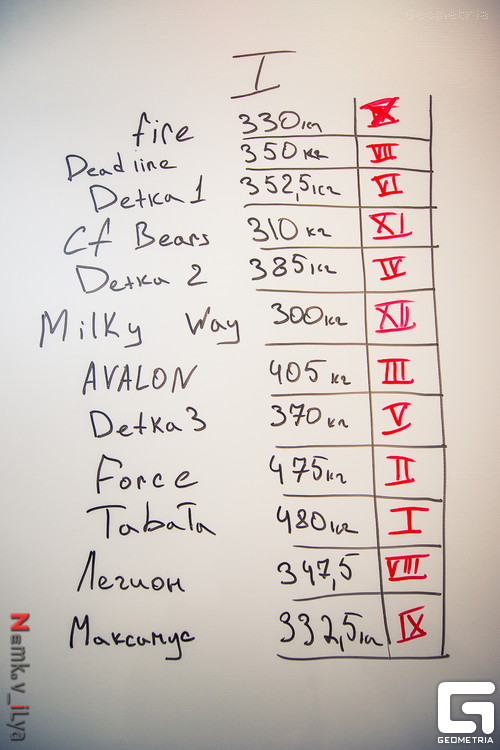 Geometria
I
fire 330кг X
Deadline 350кг VII
Detka 1 352,5кг VI
Cf Bears 310кг XI
Detka 2 385кг IV
Milky Way 300кг XII
AVALON 405кг III
Detka 3 370кг V
Force 475кг II
Tabata 480кг I
Легион 347,5 VIII
Максимус 332,5кг IX
Nemkov_iLya
GEOMETRIA